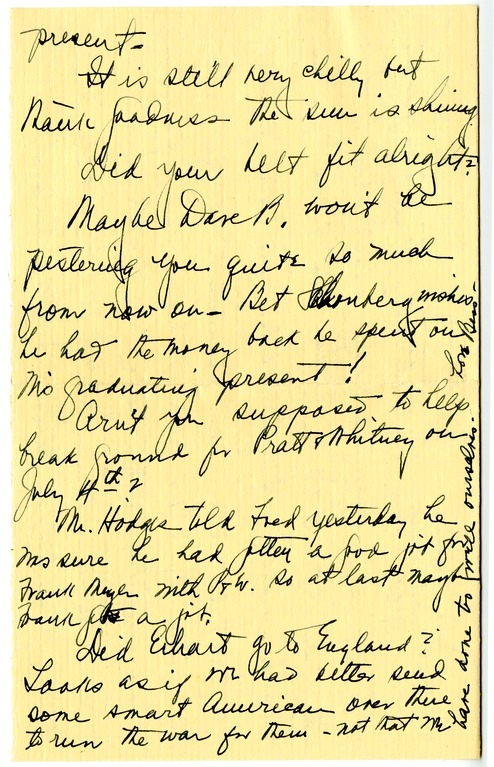 present-
It is still very chilly but
thank goodness the sun is shining.
Did your belt fit alright?
Maybe Dave B. won't be
pestering you quite so much
from now on - Bet Schonberg wishes
he had the money back he spent on
M's graduating present!
Arn't you supposed to help
break ground for Pratt & Whitney on
July 4th?
Mr. Hodges told Fred yesterday he
was sure he had gotten a good job for
Frank Meyer with P&W. so at last maybe
Frank gets a job.
Did Erhart go to England?
Looks as if we had better send
some smart American over there
to run the war for them - not that we
have done so well ourselves.
Love Bess-